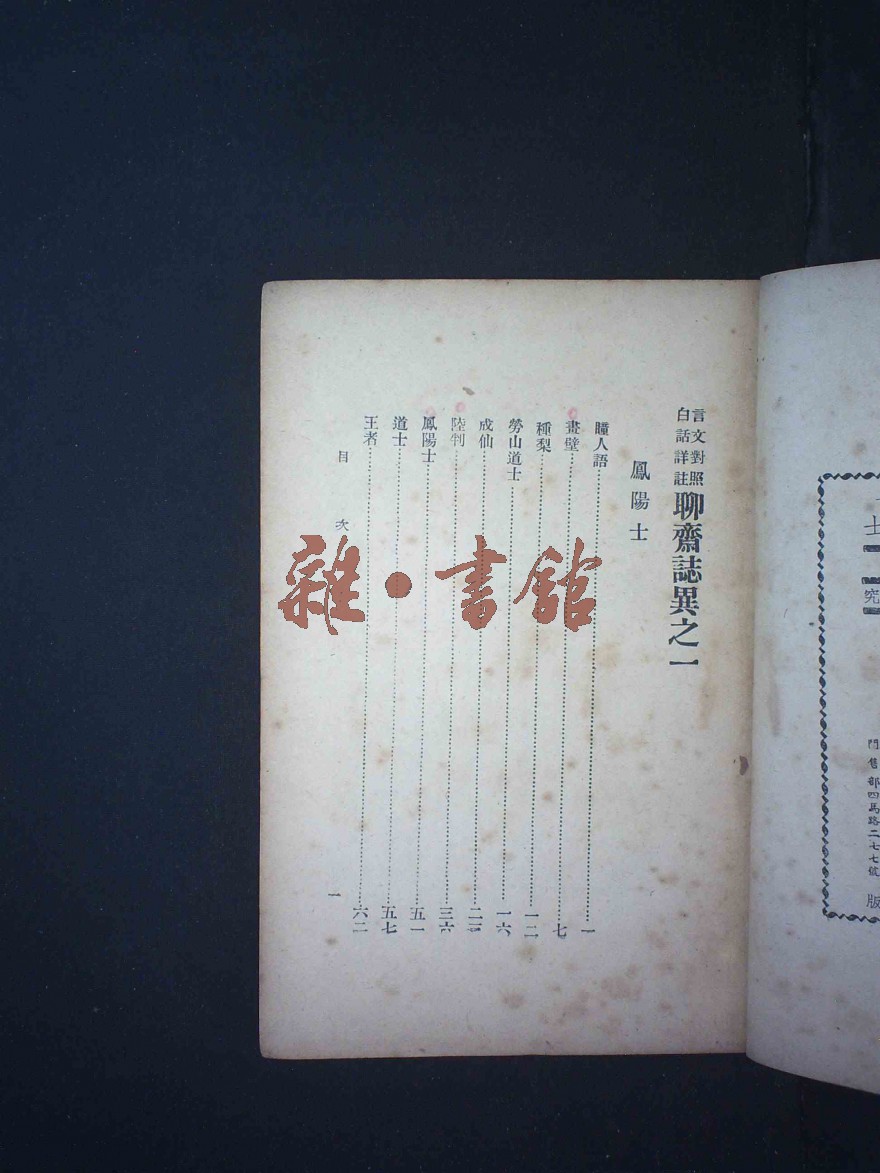 言文對照
白話詳註
聊齋誌異之一
鳳陽士
瞳人語 一
畫壁 七
種梨 一二
勞山道士 一六
成仙
陸判 三六
鳳陽士 五一
道士 五七
王者 六二
目次 一
雜·書館
究
門售部四馬路二七七號
版